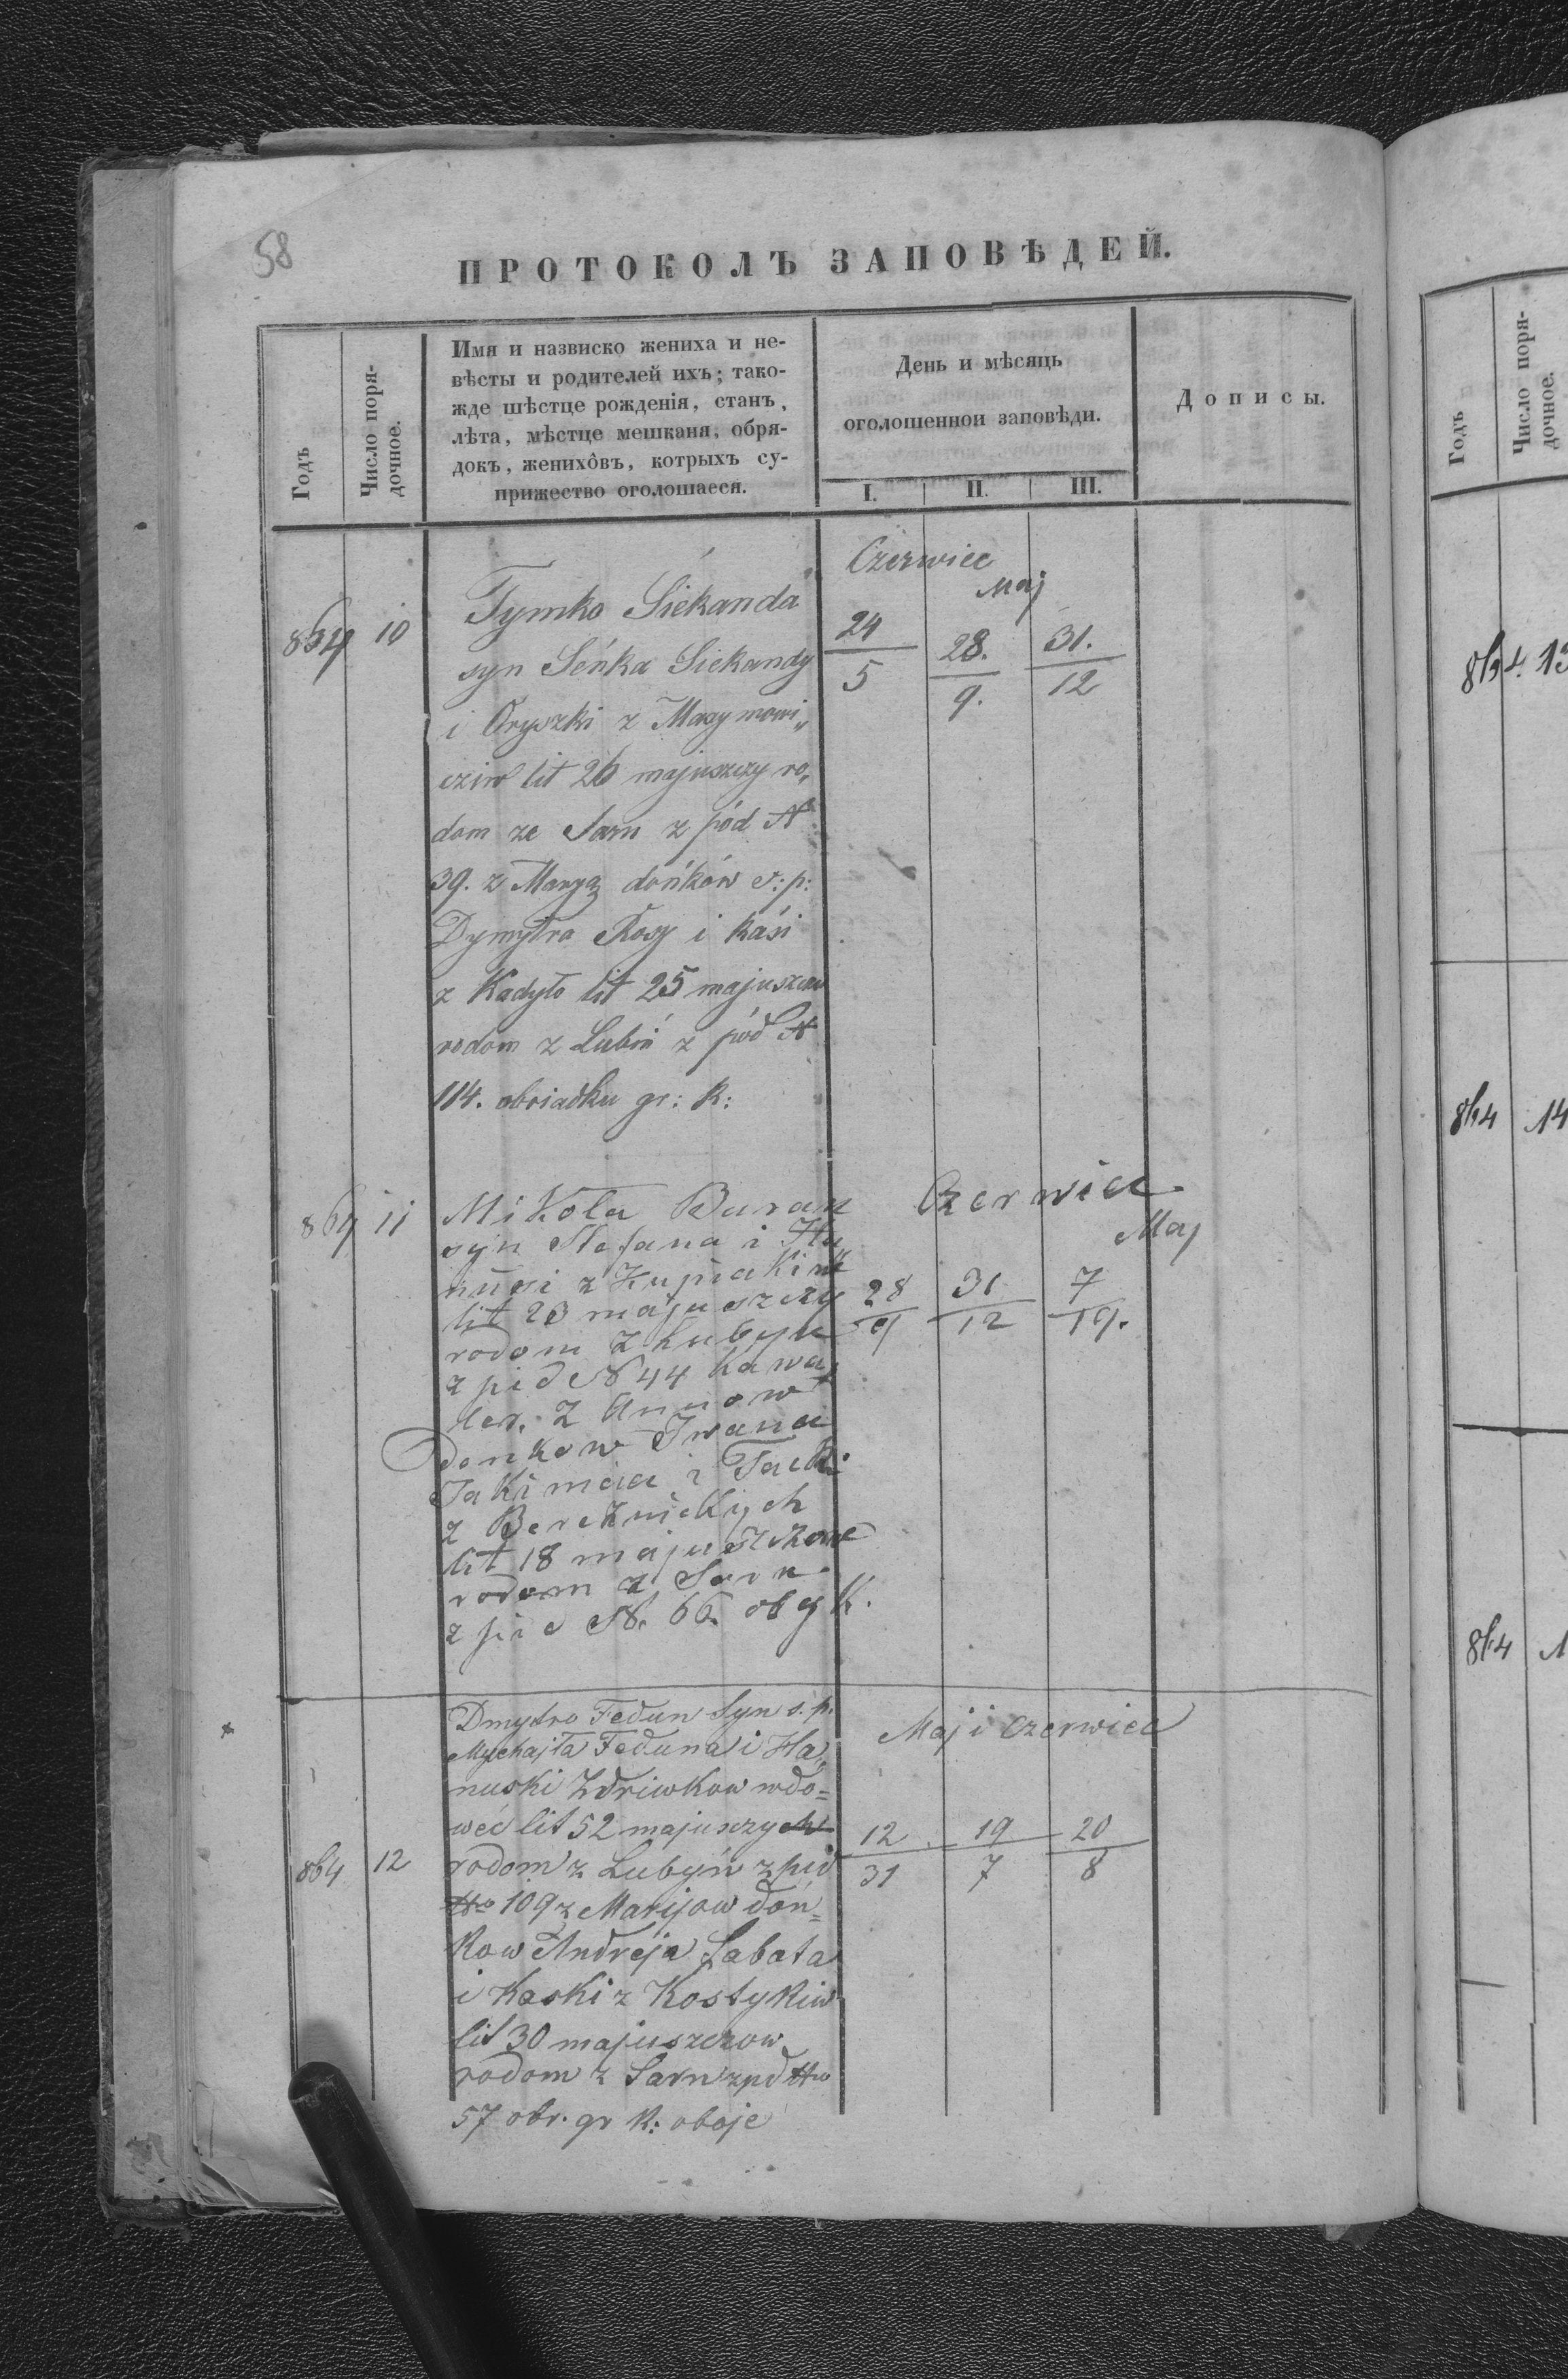 58
ПРОТОКОЛЪ ЗАПОВѢДЕЙ.
Годъ
Число поря-
дочное.
Имя и назвиско жениха и не-
вѣсты и родителей ихъ; тако-
жде мѣстце рожденія, станъ,
лѣта, мѣстце мешканя, обря-
докъ, женихôвъ, котрыхъ су-
прижество оголошаеся.
День и мѣсяць
оголошенной заповѣди.
I. II. III.
Дописы.
864 10
Tymko Siekanda
syn Seńka Siekandy
i Oryszki z Maxymowi„
cziw lit 26 majuszczy ro„
dom ze Sarn z pód N
39. z Maryą dońków ś: p:
Dymytra Kosy i Kaśi
z Kadyło lit 25 majuszczow
rodom z Lubiń z pód N
114. obriadku gr: k:
Czerwiec
Maj
24 28. 31.
5 9. 12
864 11
Mikoła Buran
syn Stefana i Ha
nusi z Kupiakiw
lit 23 majuszczy
rodom z Lubyn
z pid N 44 kawa
ler. Z Annow
Donkow Iwana
Jakimcia i Tacki
z Bereźnickych
lit 18 majuszczow
rodom z Sarn
z pid N. 66. ob g K.
Czerwiec
Maj
28 31 7
9 12 19.
864 12
Dmytro Fedun Syn s. p.
Mychajła Feduna i Ha„
nuski Zdriwkow wdo=
weć lit 52 majuszczy
rodom z Lubyń z pid
Nro 109 z Marijow doń=
kow Andreja Sabata
i Kaski z Kostykiw
lit 30 majuszczow
rodom z Sarn z pd Nro
57 obr. gr k: oboje
Maj i Czerwiec
12 19 20
31 7 8
Годъ
Число поря-
дочное.
864. 13
864 14
864